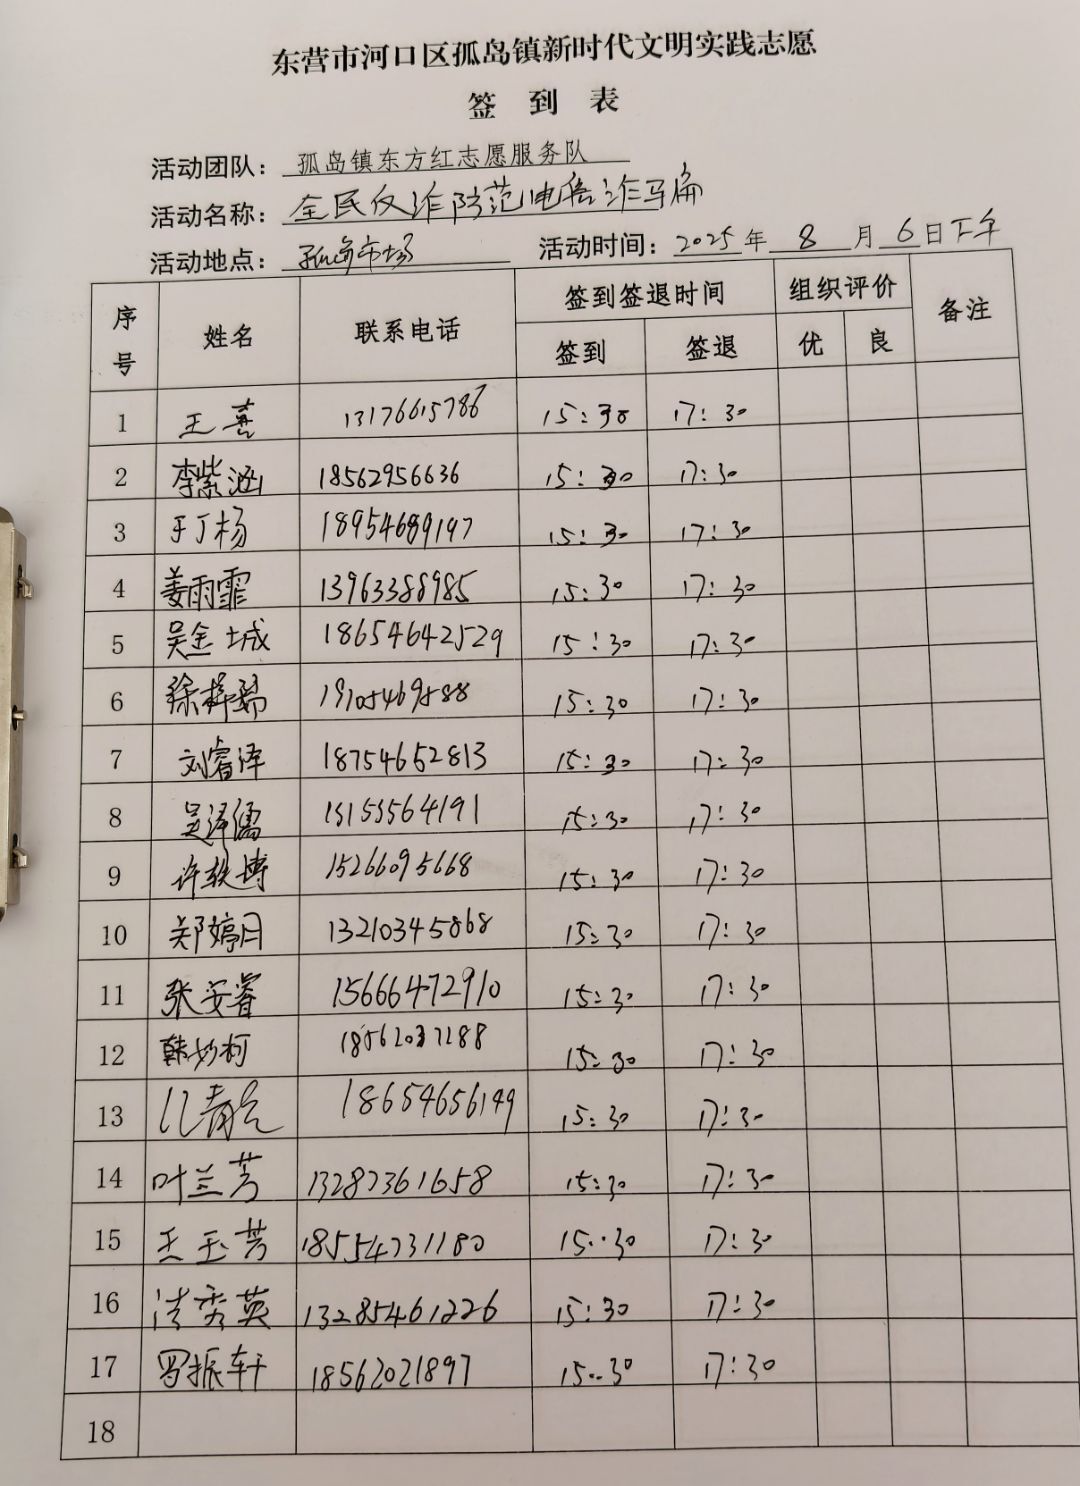 东营市河口区孤岛镇新时代文明实践志愿
签 到 表
活动团队：孤岛镇东方红志愿服务队
活动名称：全民反诈防范电信诈骗
活动地点：孤岛市场 活动时间：2025年 8 月 6日下午
序号 姓名 联系电话 签到签退时间 组织评价 备注
签到 签退 优 良
1 王喜 13176615786 15:30 17:30
2 李紫涵 18562956636 15:30 17:30
3 于丁杨 18954689197 15:30 17:30
4 姜雨霏 13963388985 15:30 17:30
5 吴金城 18654642529 15:30 17:30
6 徐梓瑞 19105469588 15:30 17:30
7 刘睿泽 18754652813 15:30 17:30
8 吴泽儒 15153564191 15:30 17:30
9 许轶博 15266095668 15:30 17:30
10 郑婷月 13210345868 15:30 17:30
11 张安睿 15666472910 15:30 17:30
12 韩妙柯 15:30 17:30
13 18654656149 15:30 17:30
14 叶兰芳 13282361658 15:30 17:30
15 王玉芳 18554731180 15:30 17:30
16 秀英 13285461226 15:30 17:30
17 罗振轩 18562021897 15:30 17:30
18